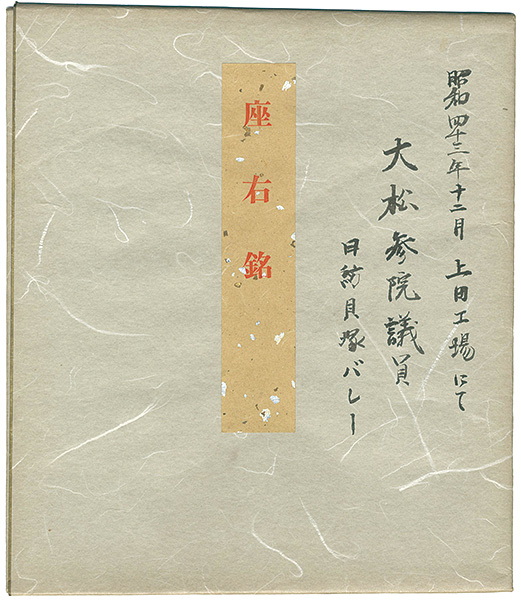 昭和四十三年十二月 上田工場にて
大松参院議員
日紡貝塚バレー
座右銘